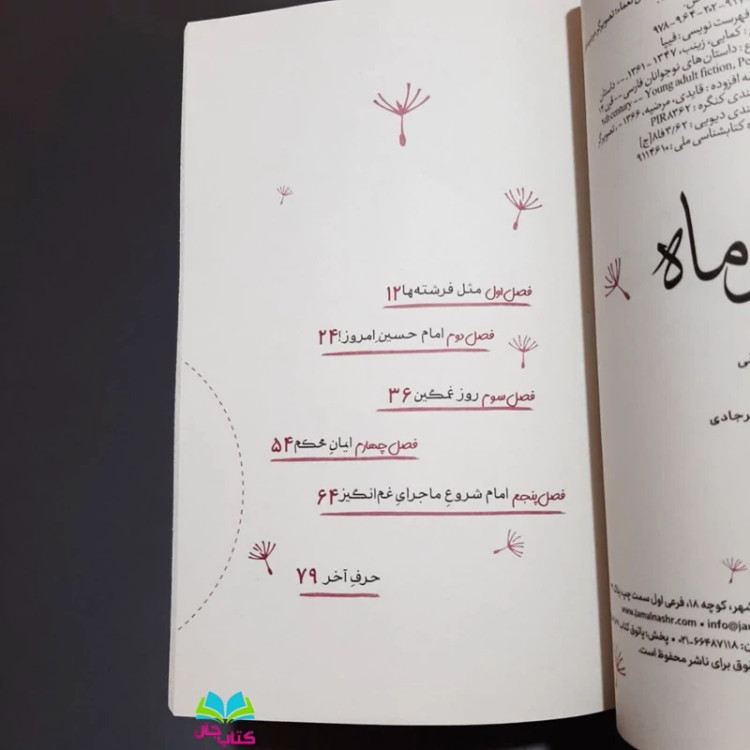 فصل اول مثل فرشته‌ها ۱۲
فصل دوم امام حسینِ امروز! ۲۴
فصل سوم روز غمگین ۳۶
فصل چهارم ایمانِ محکم ۵۴
فصل پنجم امام شروعِ ماجرایِ غم‌انگیز ۶۴
حرفِ آخر ۷۹
کتاب جان
۹۷۸-۹۶۴-۲۰۲-
فهرست نویسی: فیپا
: کمایی، زینب، ۱۳۴۷-۱۳۶۱. -- داستان
ع: داستان‌های نوجوانان فارسی -- قرن ۱۴
th century -- Young adult fiction, Pe
ه افزوده: قایدی، مرضیه، ۱۳۶۶-، تصویرگر
بندی کنگره: PIR۸۳۶۲
بندی دیویی: ۸فا۳/۶۲[ج]
کتابشناسی ملی: ۹۱۱۴۶۱۰
ماه
رجادی
شهر، کوچه ۱۸، فرعی اول سمت چپ، پلاک
www.jamalnashr.com • info@ja
۰۲۱-۶۶۴۸۷۱۱۸ • پخش: پاتوق کتاب
قوق برای ناشر محفوظ است.